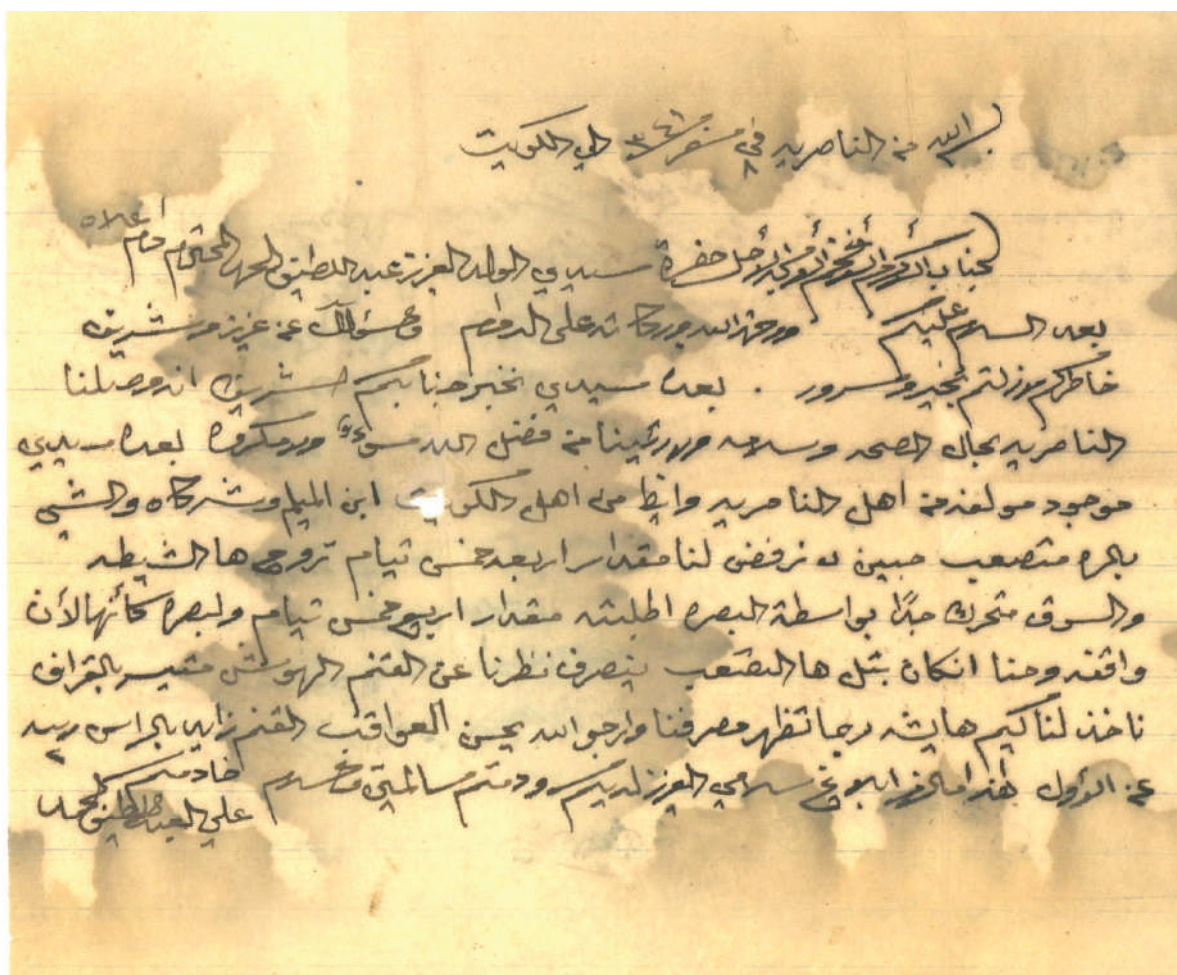 بسم الله من الناصريه في ٨ صفر ٣٤١ الى الكويت
لجناب الأكرم الأفخم الأمجد الأجل حضرة سيدي الوالد العزيز عبد اللطيف الحمد المحترم دام علاه
بعد السلام عليكم ورحمة الله وبركاته على الدوام والسؤال عن عزيز وشريف
خاطركم لازلتم بخير وسرور . بعده سيدي نخبر جنابكم الشريف انه وصلنا
الناصريه بحال الصحه وسلامه ولا رئينا من فضل الله سوء ولا مكروه بعده سيدي
موجود مولفه من اهل الناصريه وايظا من اهل الكويت ابن الميلم وشركاه والشي
بلمره متصعب حبين لا نرفض لنا مقدار اربعه خمس تيام تروح ها الشيطه
والسوق متحرك جدًا بواسطة البصره اطلبته مقدار اربع خمس تيام ولبصره كأنها الأن
واقفه وحنا انكان بتل ها التصعب ينصرف نظرنا عن الغنم الهوش متيسر بالقراف
ناخذ لنا كيم هايشه رجا تظهر مصرفنا وارجو الله يحسن العواقب الغنم زايد بالراس ربيه
عن الأول هذا مالزم ابلاغ سلامي العزيز لديكم ودمتم سالمين والسلام خادمكم
علي العبد اللطيف الحمد